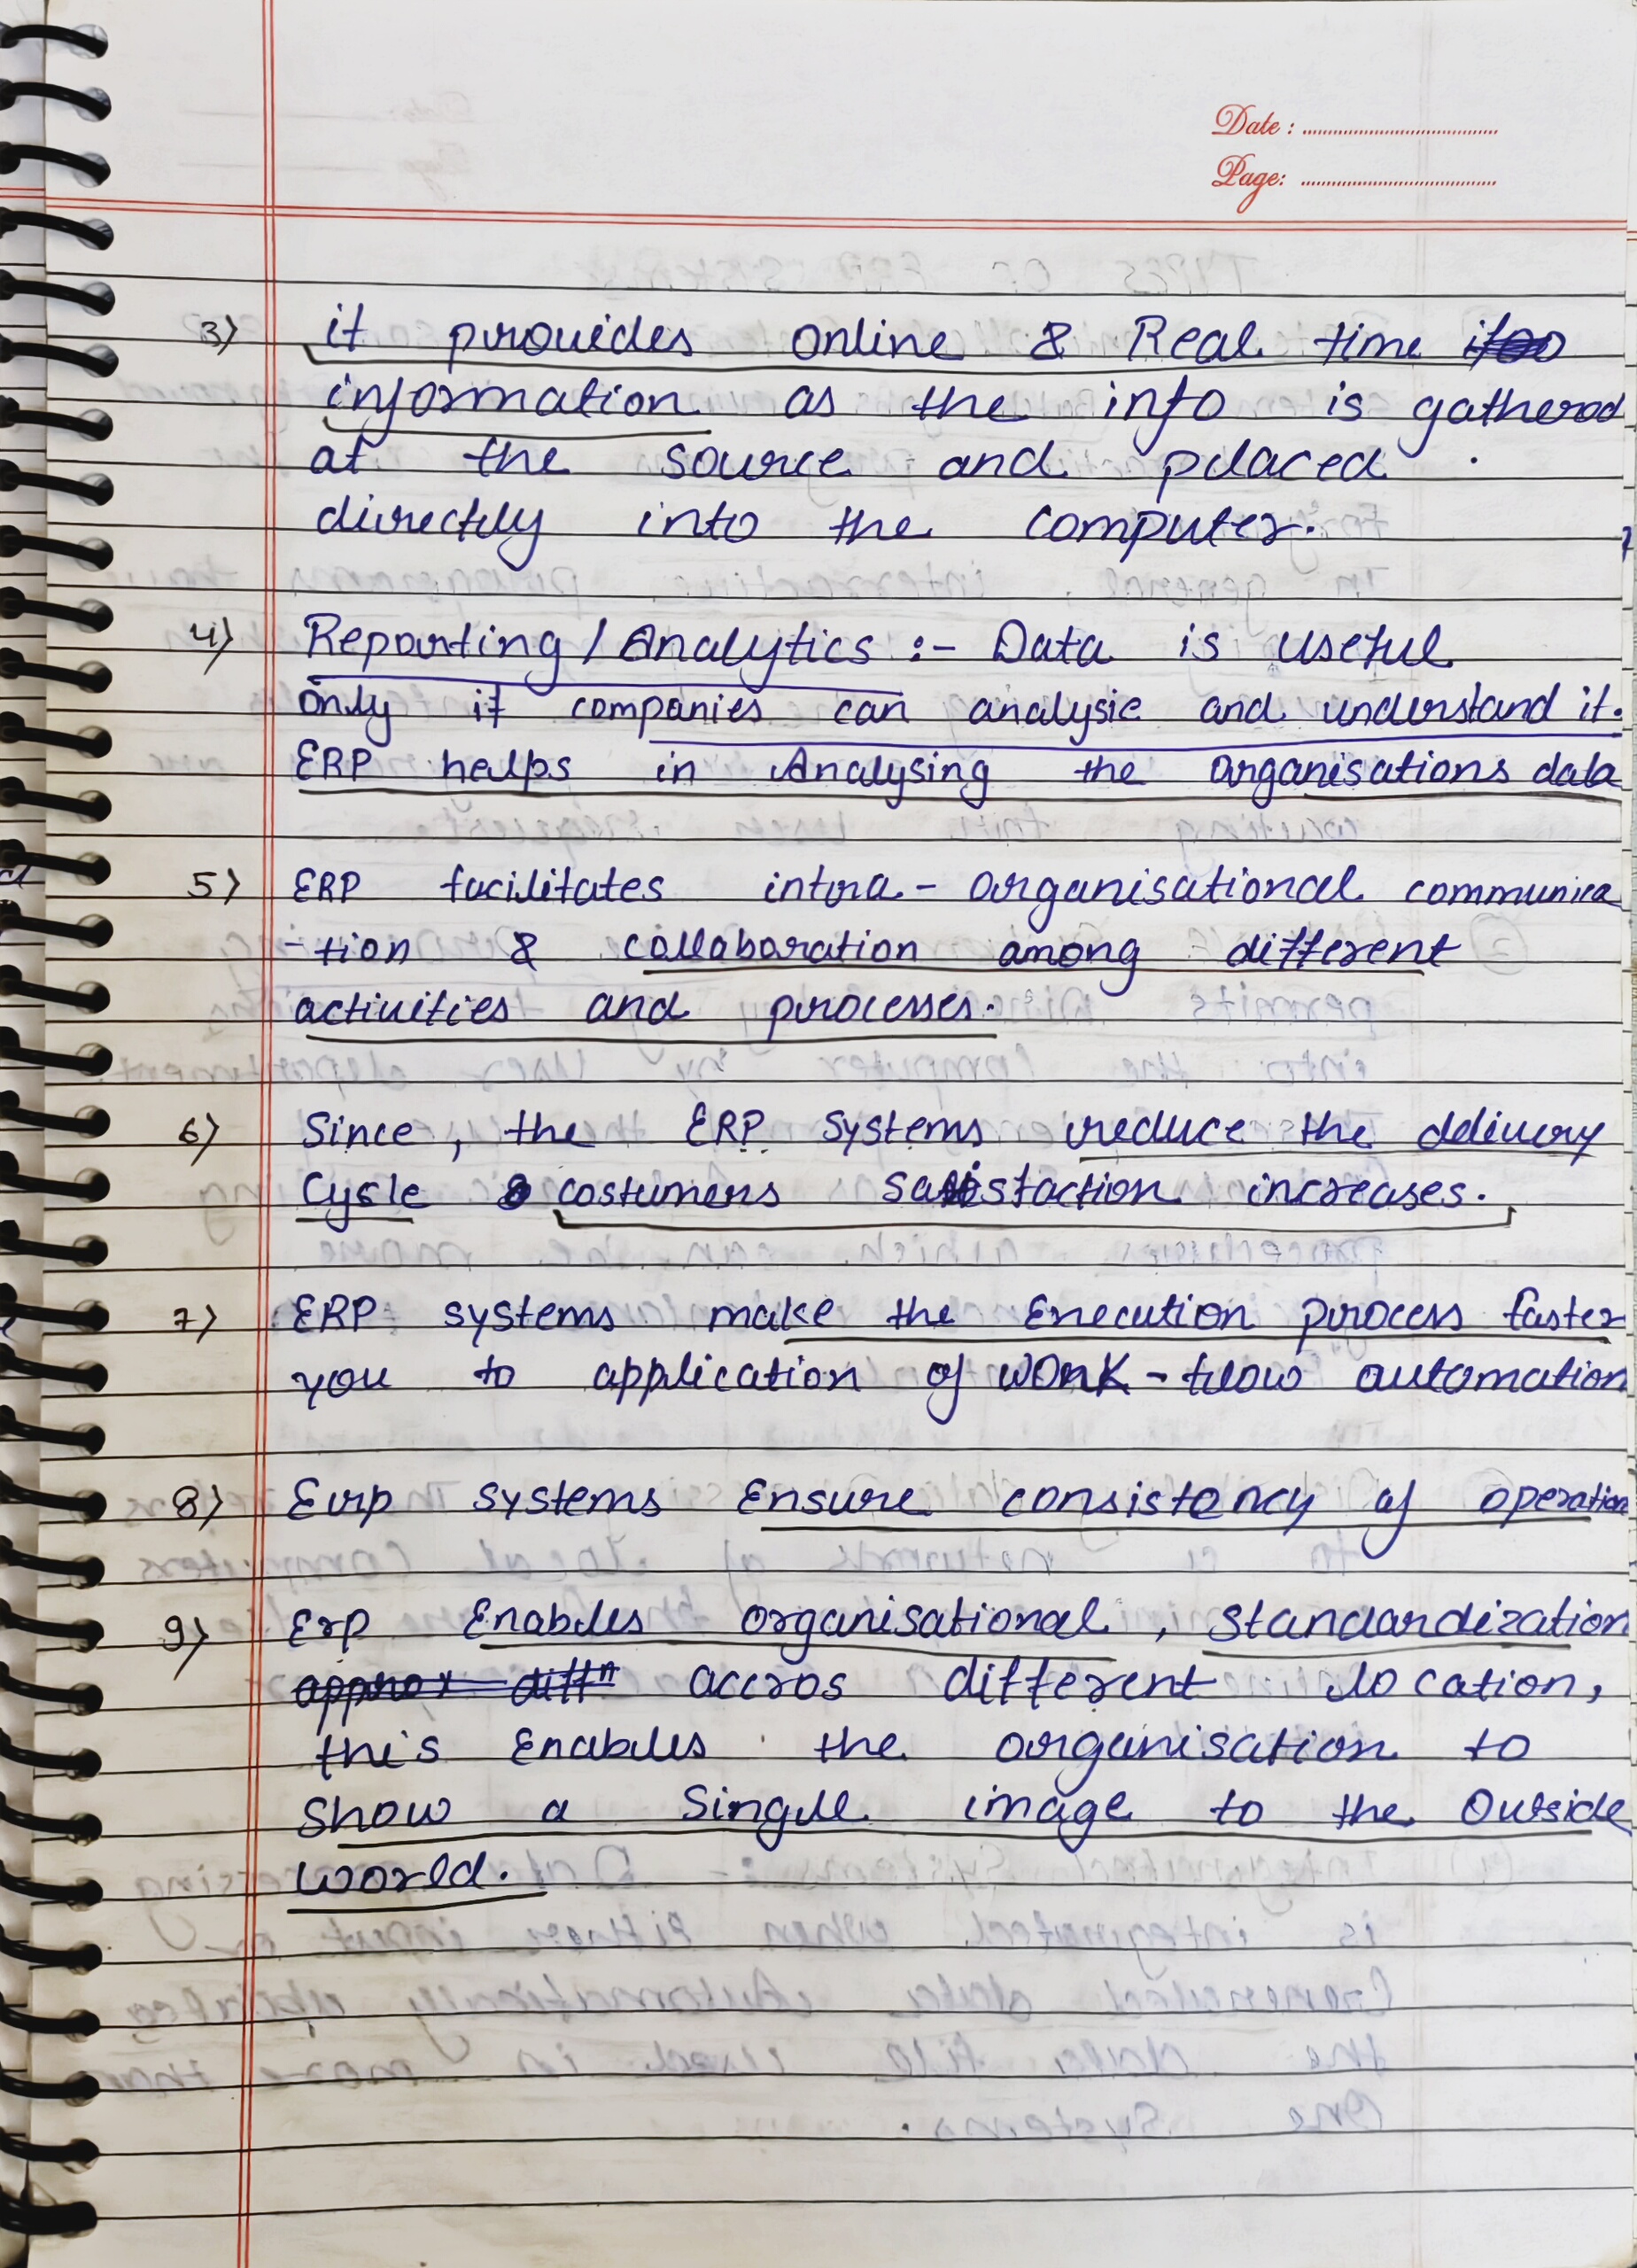 Date :
Page:
3) it provides online & Real time
information as the info is gathered
at the source and placed
directly into the computer.
4) Reporting / Analytics :- Data is useful
only if companies can analysie and understand it.
ERP helps in Analysing the organisations data
5) ERP facilitates intra - organisational communica
-tion & collaboration among different
activities and processes.
6) Since, the ERP systems reduce the delivery
Cycle & costumers satisfaction increases.
7) ERP systems make the Execution process faster
you to application of work - flow automation
8) Erp systems Ensure consistency of operation
9) Erp Enables organisational, standardization
approx diffn accros different location,
this Enables the organisation to
Show a Single image to the Outside
world.